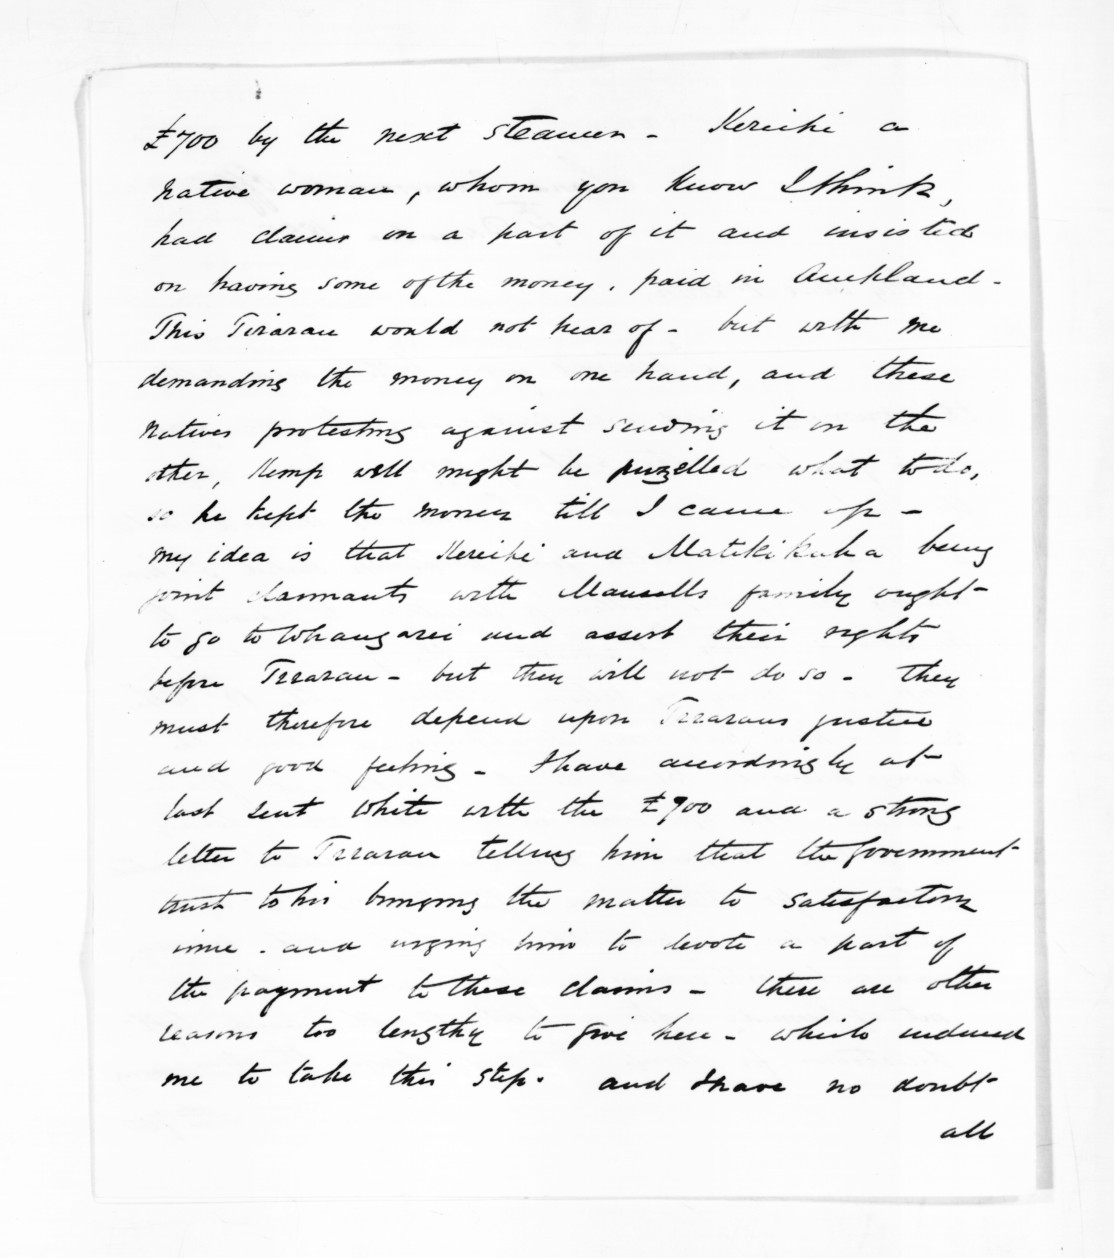 £700 by the next steamer - Kereihi a
native woman, whom you know I think,
had claims on a part of it and insisted
on having some of the money, paid in Auckland -
This Tirarau would not hear of - but with me
demanding the money on one hand, and these
natives protesting against sending it on the
other, Kemp well might be puzzelled what to do,
so he kept the money till I came up -
my idea is that Kereihi and Matikikuha being
joint claimants with Maunsells family ought
to go to Whangarei and assert their rights
before Tirarau - but they will not do so - they
must therefore depend upon Tiraraus justice
and good feeling - I have accordingly at
last sent White with the £700 and a strong
letter to Tirarau telling him that the Government
trust to his bringing the matter to satisfactory
issue. and urging him to devote a part of
the payment to these claims - there are other
reasons too lengthy to give here - which induced
me to take this step. and I have no doubt
all